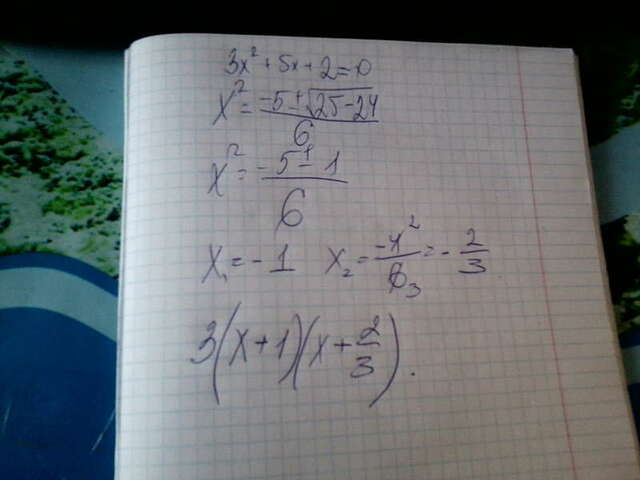 3x² + 5x + 2 = 0
x² = (-5 ± √(25-24))/6
x² = (-5 ± 1)/6
x₁ = -1 x₂ = -4²/6₃ = -2/3
3(x+1)(x+2/3).